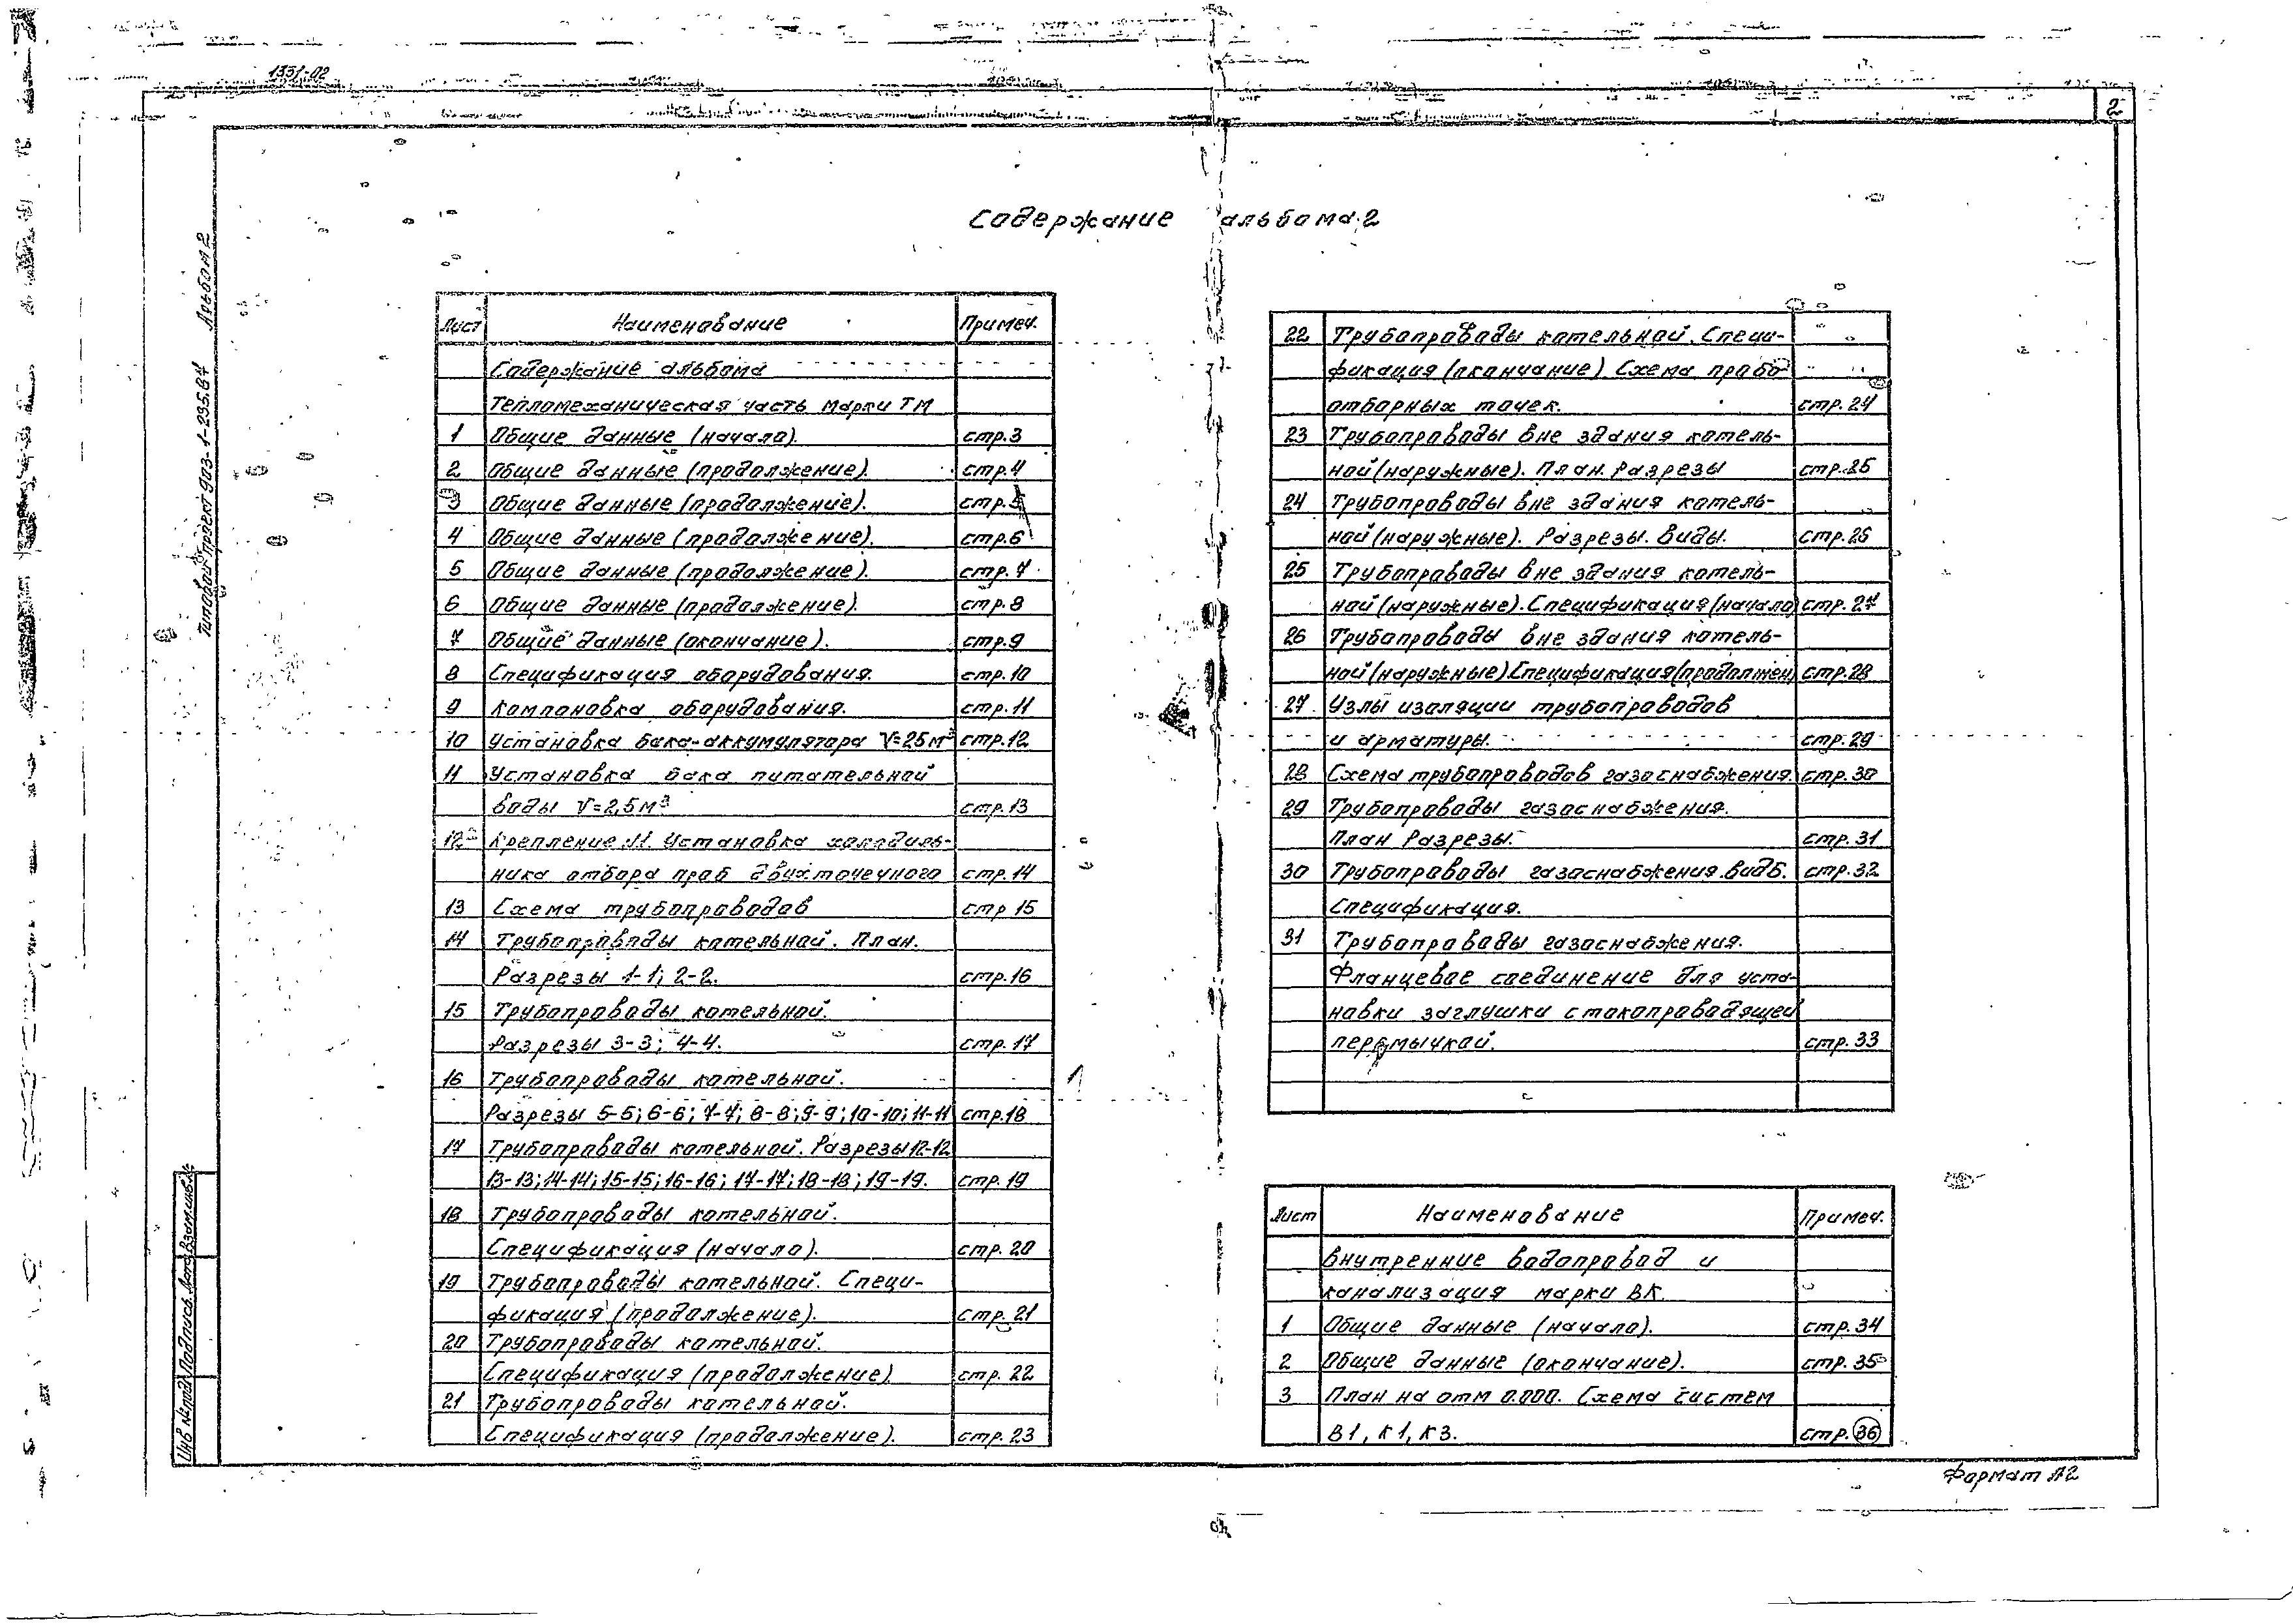 1331-02
2
Содержание альбома 2
Типовой проект 903-1-235.87 Альбом 2
Лист Наименование Примеч.
Содержание альбома
Тепломеханическая часть марки ТМ
1 Общие данные (начало). стр.3
2 Общие данные (продолжение). стр.4
3 Общие данные (продолжение). стр.5
4 Общие данные (продолжение). стр.6
5 Общие данные (продолжение). стр.7
6 Общие данные (продолжение). стр.8
7 Общие данные (окончание). стр.9
8 Спецификация оборудования. стр.10
9 Компоновка оборудования. стр.11
10 Установка бака-аккумулятора V=25м³ стр.12
11 Установка бака питательной
воды V=2,5м³ стр.13
12 Крепление М. Установка холодиль-
ника отбора проб двухточечного стр.14
13 Схема трубопроводов стр 15
14 Трубопроводы котельной. План.
Разрезы 1-1; 2-2. стр.16
15 Трубопроводы котельной.
Разрезы 3-3; 4-4. стр.17
16 Трубопроводы котельной.
Разрезы 5-5; 6-6; 7-7; 8-8; 9-9; 10-10; 11-11 стр.18
17 Трубопроводы котельной. Разрезы 12-12
13-13; 14-14; 15-15; 16-16; 17-17; 18-18; 19-19. стр.19
18 Трубопроводы котельной.
Спецификация (начало). стр.20
19 Трубопроводы котельной. Специ-
фикация (продолжение). стр.21
20 Трубопроводы котельной.
Спецификация (продолжение) стр.22
21 Трубопроводы котельной.
Спецификация (продолжение). стр.23
22 Трубопроводы котельной. Специ-
фикация (окончание) Схема пробо-
отборных точек. стр.24
23 Трубопроводы вне здания котель-
ной (наружные). План. Разрезы стр.25
24 Трубопроводы вне здания котель-
ной (наружные). Разрезы. Виды. стр.26
25 Трубопроводы вне здания котель-
ной (наружные). Спецификация (начало) стр.27
26 Трубопроводы вне здания котель-
ной (наружные) Спецификация (продолжен) стр.28
27 Узлы изоляции трубопроводов
и арматуры. стр.29
28 Схема трубопроводов газоснабжения. стр.30
29 Трубопроводы газоснабжения.
План Разрезы. стр.31
30 Трубопроводы газоснабжения. Вид Б. стр.32
Спецификация.
31 Трубопроводы газоснабжения.
Фланцевое соединение для уста-
новки заглушки с токопроводящей
перемычкой. стр.33
Лист Наименование Примеч.
Внутренние водопровод и
канализация марки ВК.
1 Общие данные (начало). стр.34
2 Общие данные (окончание). стр.35
3 План на отм 0.000. Схема систем
В1, К1, К3. стр.36
Инв № подл Подпись. Дата Взам.инв.№
Формат А2